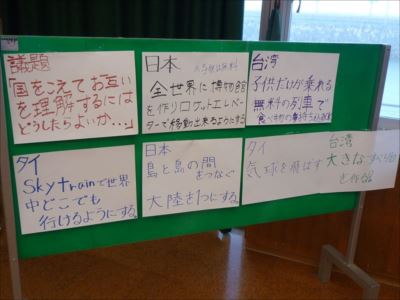 議題
「国をこえてお互い
を理解するには
どうしたらよいか…」
日本
全世界に博物館
を作りロケットエレベー
ターで移動出来るようにする
台湾
子供だけが乗れる
無料の列車で
タイ
Skytrainで世界
中どこでも
行けるようにする
日本
島と島の間
をつなぐ
大陸を1つにする
タイ
気球を飛ばす
台湾
大きなすべり台
を作る